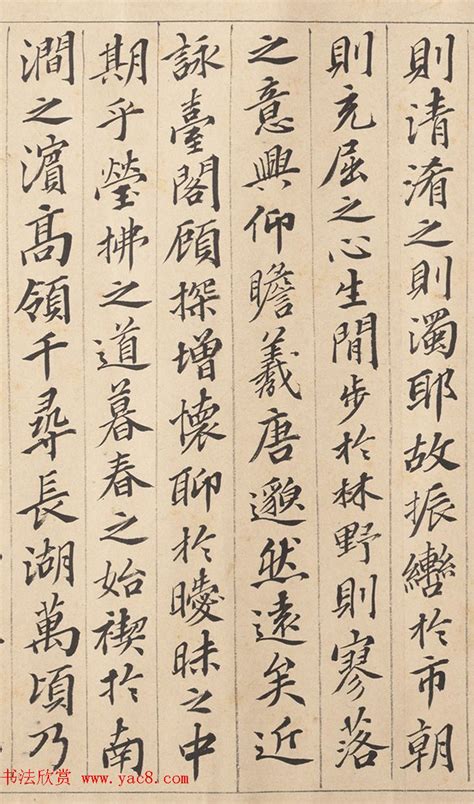 則清淆之則濁耶故振轡於市朝
則充屈之心生閒步於林野則寥落
之意興仰瞻羲唐邈然遠矣近
詠臺閣顧探增懷聊於曖昧之中
期乎瑩拂之道暮春之始禊於南
澗之濱高領千尋長湖萬頃乃
书法欣赏 www.yac8.com